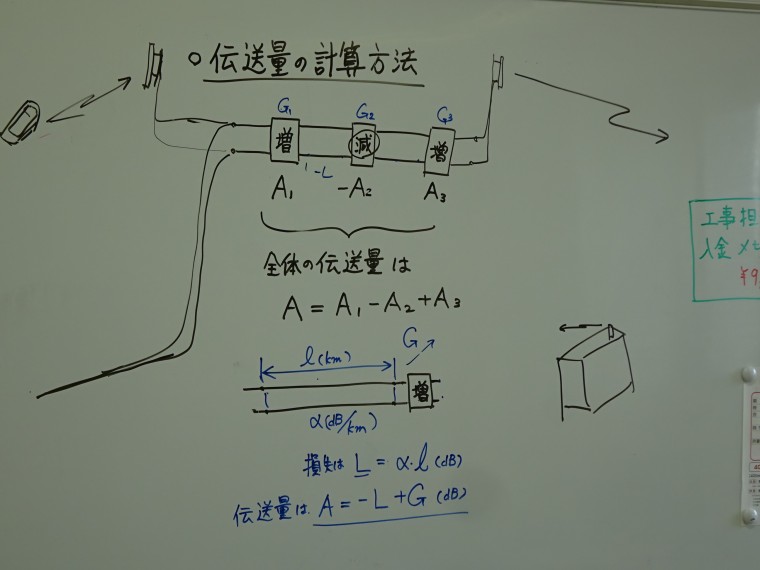 ○ 伝送量の計算方法
G₁ G₂ G₃
増 減 増
-L
A₁ -A₂ A₃
全体の伝送量は
A = A₁-A₂+A₃
l(km)
G
増
α(dB/km)
損失は L = α·l (dB)
伝送量は A = -L+G (dB)
工事担
入金メモ
¥9